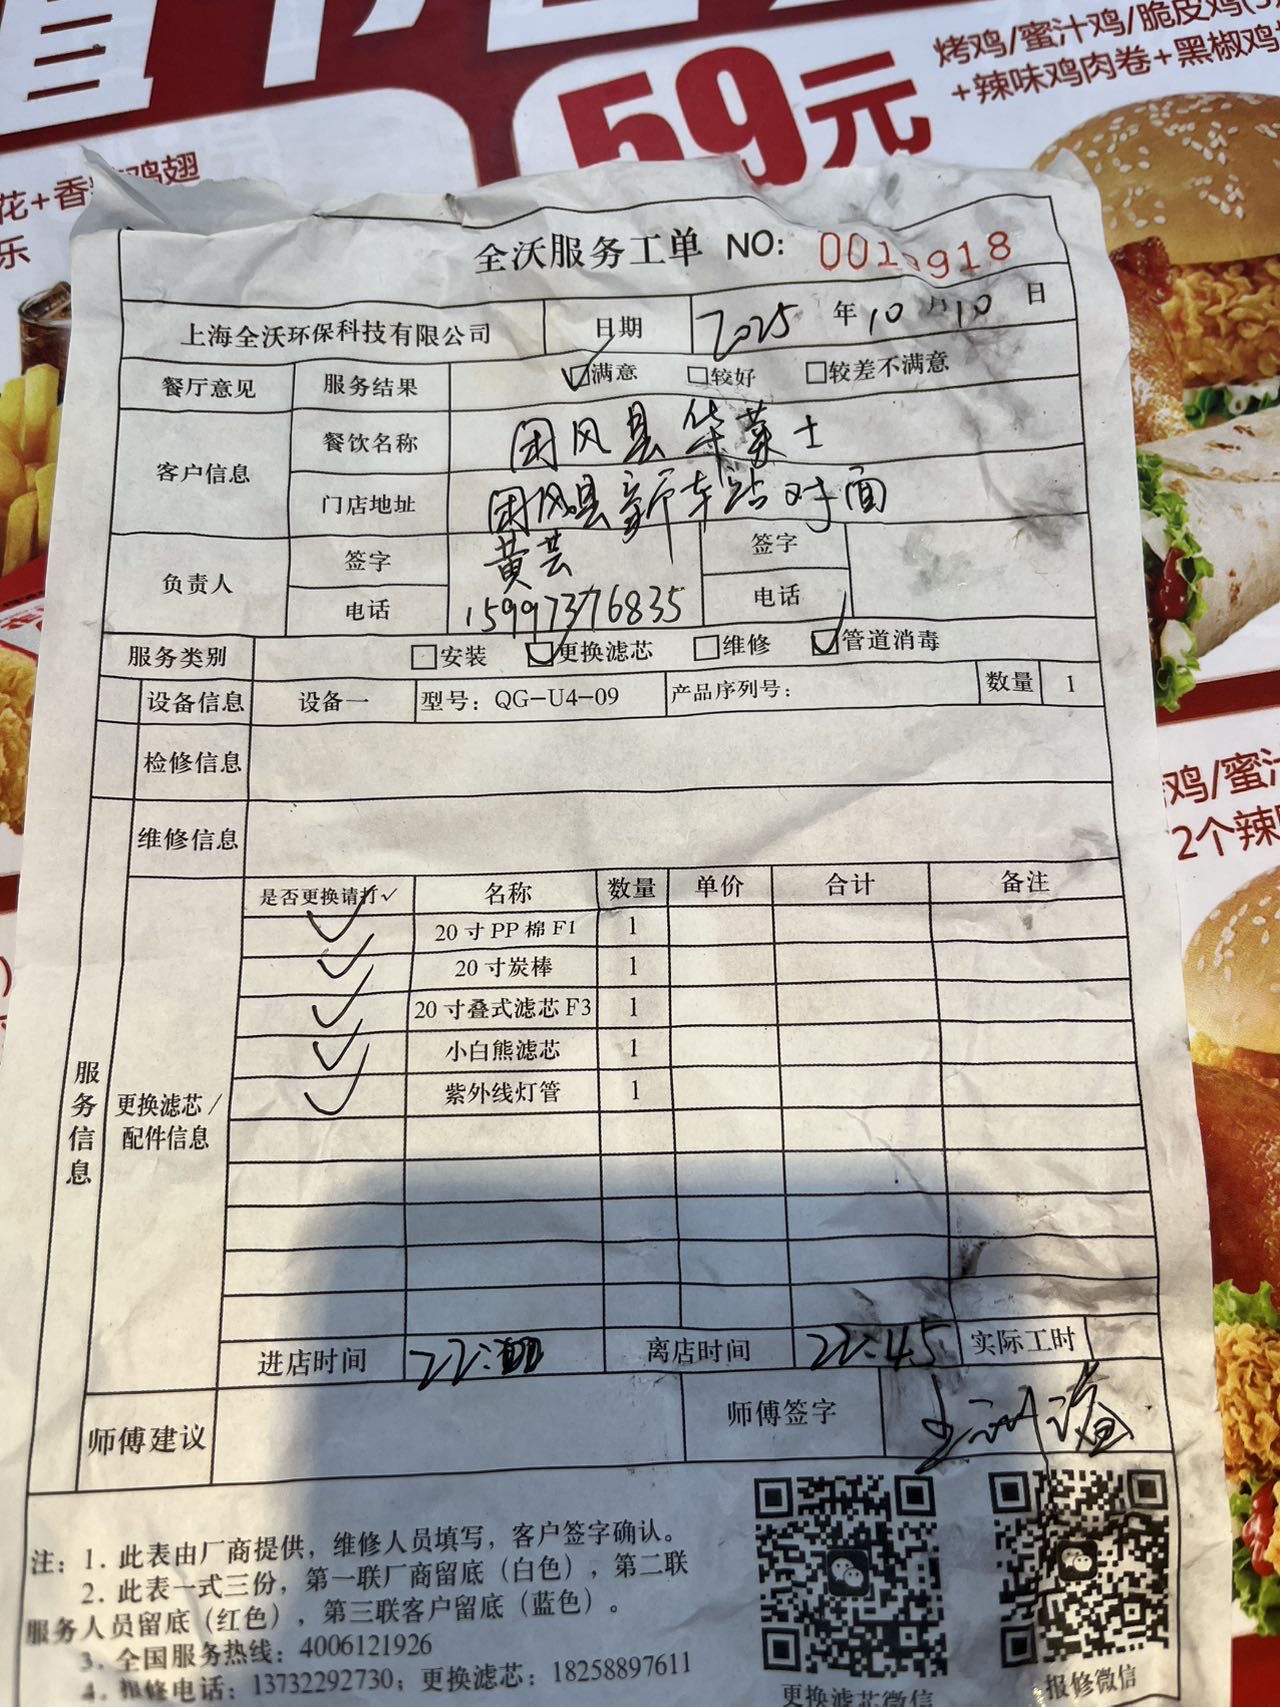 59元
烤鸡/蜜汁鸡/脆皮鸡
+辣味鸡肉卷+黑椒鸡
花+香 鸡翅
乐
全沃服务工单 NO: 001 918
上海全沃环保科技有限公司 日期 2025 年 10 月 10 日
餐厅意见 服务结果 ☑满意 □较好 □较差不满意
客户信息 餐饮名称 团风县华莱士
门店地址 团风县新车站对面
负责人 签字 黄芸 签字
电话 15997376835 电话
服务类别 □安装 ☑更换滤芯 □维修 ☑管道消毒
设备信息 设备一 型号: QG-U4-09 产品序列号: 数量 1
检修信息
维修信息
服务信息
更换滤芯/配件信息
是否更换请打✓ 名称 数量 单价 合计 备注
✓ 20寸PP棉F1 1
✓ 20寸炭棒 1
✓ 20寸叠式滤芯F3 1
✓ 小白熊滤芯 1
✓ 紫外线灯管 1
进店时间 22: 离店时间 22:45 实际工时
师傅建议 师傅签字
注: 1. 此表由厂商提供，维修人员填写，客户签字确认。
2. 此表一式三份，第一联厂商留底（白色），第二联
服务人员留底（红色），第三联客户留底（蓝色）。
3. 全国服务热线: 4006121926
4. 报修电话: 13732292730; 更换滤芯: 18258897611
更换滤芯微信
报修微信
鸡/蜜汁
2个辣